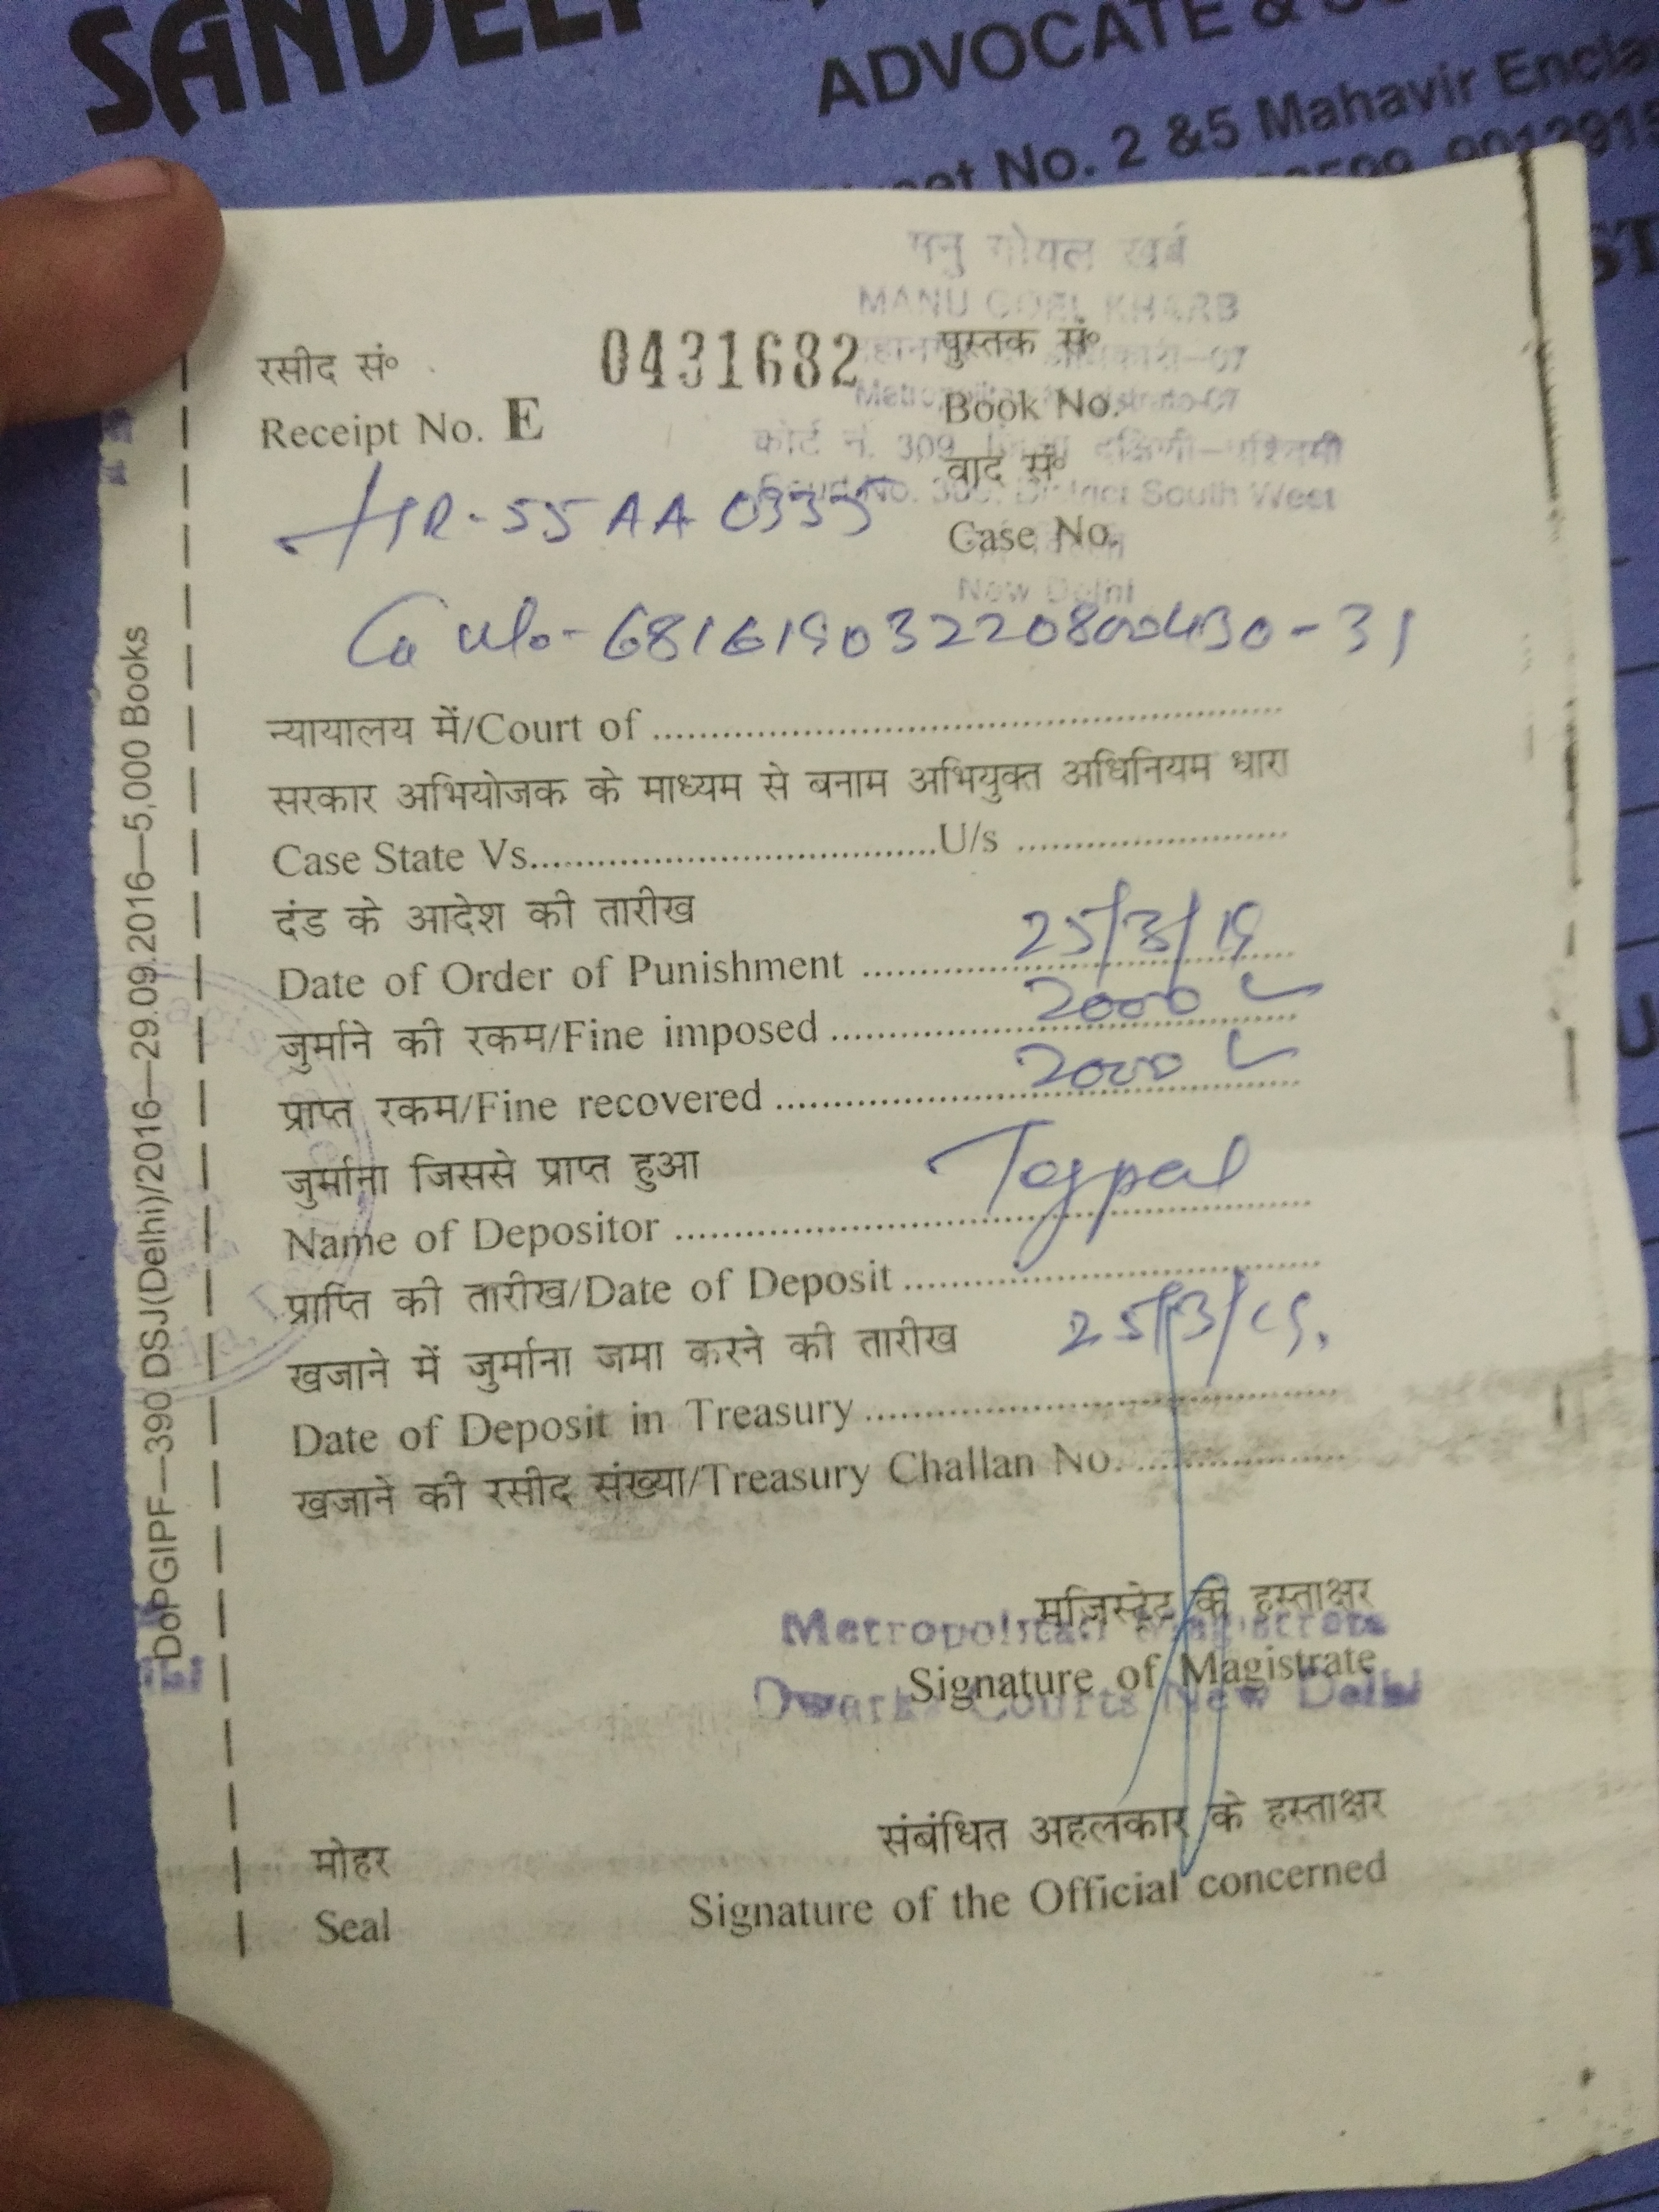 SANDEEP
ADVOCATE &
No. 2 &5 Mahavir Encla
मनु गोयल खर्ब
MANU GOEL KHARB
रसीद सं॰ 0431682 पुस्तक सं॰
Metropolitan Magistrate-07
Receipt No. E Book No.
कोर्ट नं. 309, जिला दक्षिणी-पश्चिमी
वाद सं॰
Court No. 309, District South West
HR-55 AA 0335
Case No.
New Delhi
68161903220800430-31
न्यायालय में/Court of
सरकार अभियोजक के माध्यम से बनाम अभियुक्त अधिनियम धारा
Case State Vs. U/s
दंड के आदेश की तारीख
Date of Order of Punishment 25/3/19
जुर्माने की रकम/Fine imposed 2000
प्राप्त रकम/Fine recovered 2000
जुर्माना जिससे प्राप्त हुआ
Name of Depositor Tejpal
प्राप्ति की तारीख/Date of Deposit 25/3/19.
खजाने में जुर्माना जमा करने की तारीख
Date of Deposit in Treasury
खजाने की रसीद संख्या/Treasury Challan No.
मजिस्ट्रेट के हस्ताक्षर
Metropolitan Magistrate
Signature of Magistrate
Dwarka Courts New Delhi
संबंधित अहलकार के हस्ताक्षर
मोहर
Signature of the Official concerned
Seal
DoPGIPF—390 DSJ(Delhi)/2016—29.09.2016—5,000 Books